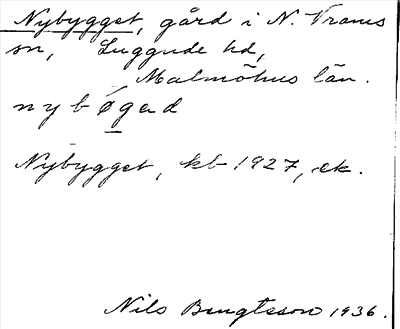 Nybygget, gård i N. Vrams
sn, Luggude hd,
Malmöhus län.
nybǿgəd
Nybygget, kb 1927, ek.
Nils Bengtsson 1936.